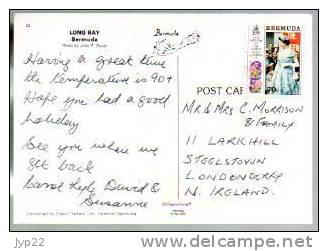 22
LONG BAY
Bermuda
Bermuda
BERMUDA
70c
Having a great time
the temperature is 90+
Hope you had a good
holiday
See you when we
get back
Carol Kyle David &
Susanne
POST CAR
MR & MRS C. MORRISON
& FAMILY
11 LARKHILL
STEELSTOWN
LONDONDERRY
N. IRELAND.
jyp22
delcampe.net